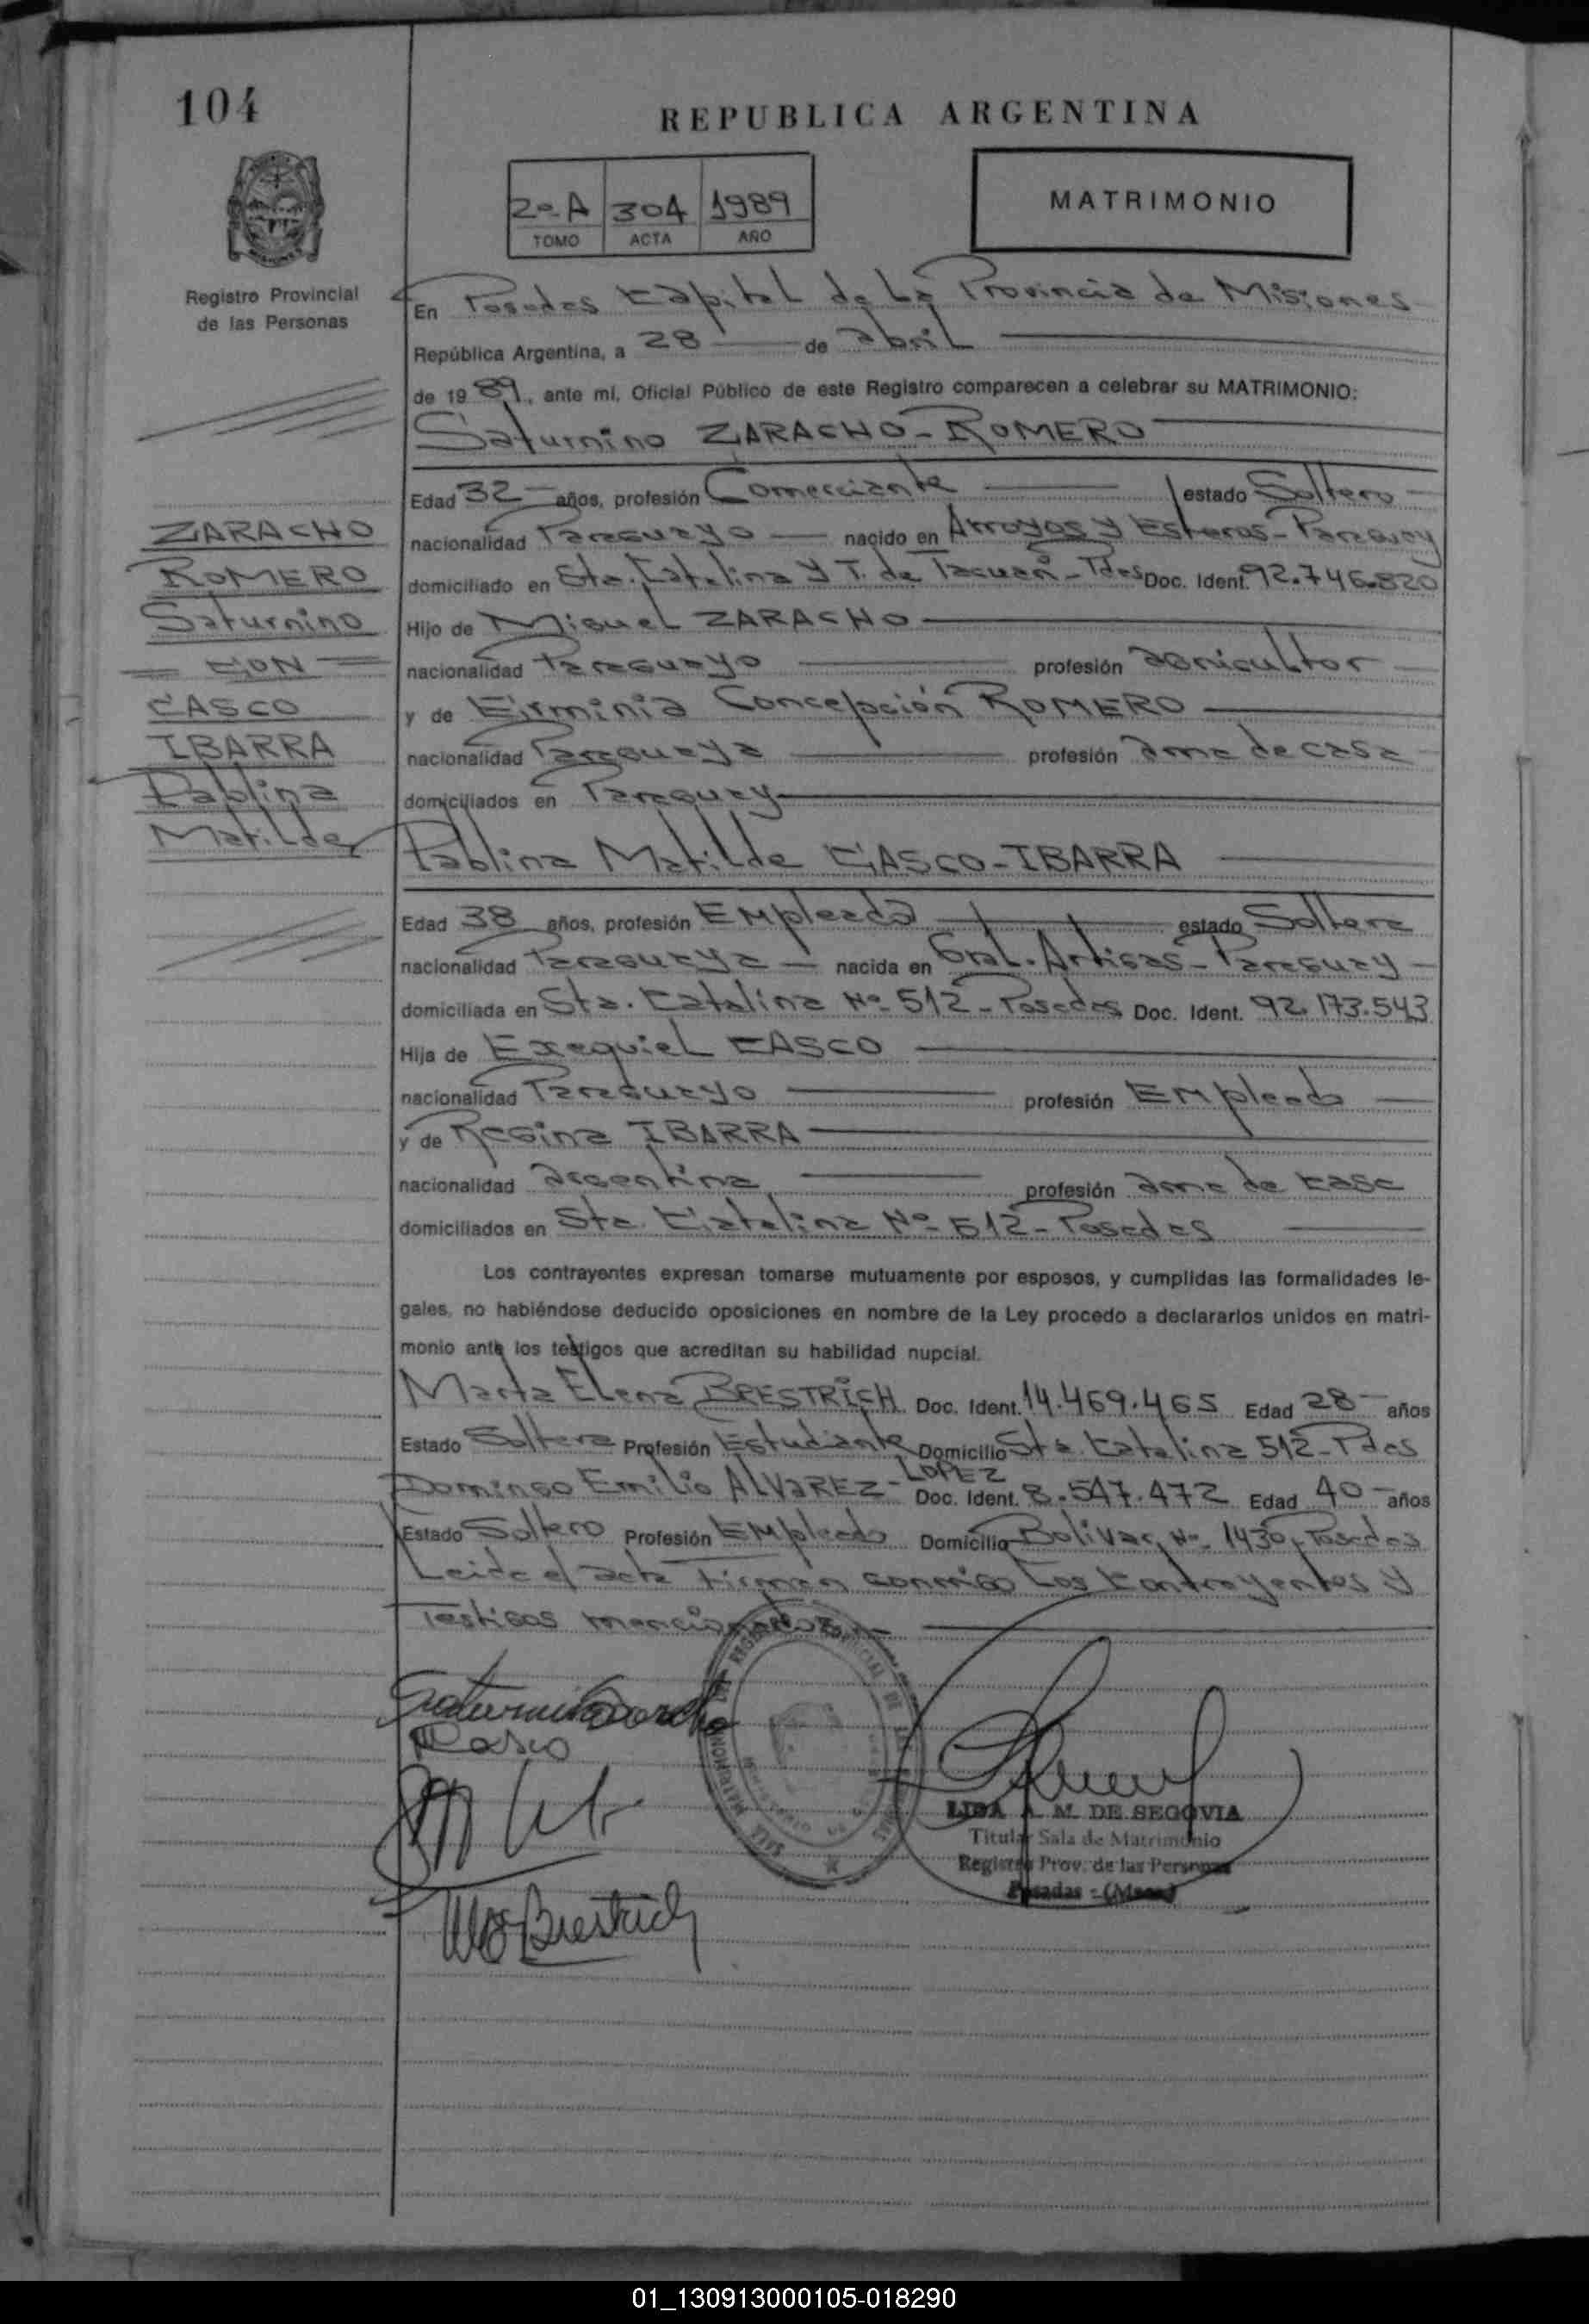 104
REPUBLICA ARGENTINA
2º-A 304 1989
TOMO ACTA AÑO
MATRIMONIO
Registro Provincial
de las Personas
En Posadas Capital de La Provincia de Misiones
República Argentina, a 28 de abril
de 1989, ante mí, Oficial Público de este Registro comparecen a celebrar su MATRIMONIO:
Saturnino ZARACHO-ROMERO
Edad 32 años, profesión Comerciante estado Soltero
nacionalidad Paraguayo nacido en Arroyos y Esteros-Paraguay
domiciliado en Sta. Catalina y T. de Tacuarí-Pdas Doc. Ident. 92.746.820
Hijo de Miguel ZARACHO
nacionalidad Paraguayo profesión agricultor
y de Eirminia Concepción ROMERO
nacionalidad Paraguaya profesión ama de casa
domiciliados en Paraguay
Pablina Matilde CASCO-IBARRA
Edad 38 años, profesión Empleada estado Soltera
nacionalidad Paraguaya nacida en Gral. Artigas-Paraguay
domiciliada en Sta. Catalina Nº 512-Posadas Doc. Ident. 92.173.543
Hija de Exequiel CASCO
nacionalidad Paraguayo profesión Empleado
y de Regina IBARRA
nacionalidad argentina profesión ama de casa
domiciliados en Sta. Catalina Nº 512-Posadas
Los contrayentes expresan tomarse mutuamente por esposos, y cumplidas las formalidades le-
gales, no habiéndose deducido oposiciones en nombre de la Ley procedo a declararlos unidos en matri-
monio ante los testigos que acreditan su habilidad nupcial.
Marta Elena BRESTRICH Doc. Ident. 14.469.465 Edad 28 años
Estado Soltera Profesión Estudiante Domicilio Sta. Catalina 512-Pdas
Domingo Emilio ALVAREZ-LOPEZ Doc. Ident. 8.547.472 Edad 40 años
Estado Soltero Profesión Empleado Domicilio Bolivar Nº 1430, Posadas
Leida el acta Firman conmigo Los Contrayentes y
Testigos mencionados
ZARACHO
ROMERO
Saturnino
CON
CASCO
IBARRA
Pablina
Matilde
Casco
Brestrich
LIDA A. M. DE SEGOVIA
Titular Sala de Matrimonio
Registro Prov. de las Personas
Posadas - (Mnes)
01_130913000105-018290